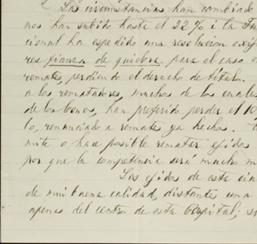 Las circunstancias han cambiado
nos han subido hasta el 22% i la Ju
cional ha expedido una resolucion exij
res fianza de quiebra para el caso e
remates, perdiendo el derecho de titulo.
a los rematadores, muchos de los cuales
de los bonos, han preferido perder el
lo, renunciado a remates ya hechos.
mite o hace posible rematar ejidos
por que la competencia será mucho m
Los ejidos de este
de mui buena calidad, distantes una
apenas del centro de esta Capital;